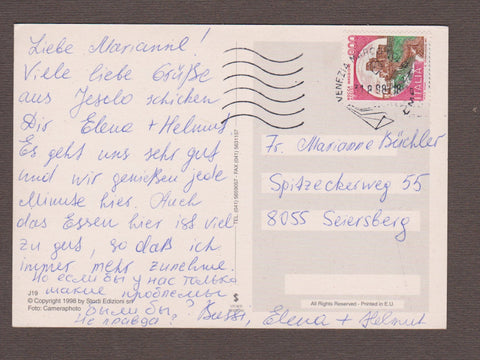 Liebe Marianne!
Viele liebe Grüße
aus Jesolo schicken
Dir Elena + Helmut
Es geht uns sehr gut
und wir genießen jede
Minute hier. Auch
das Essen hier ist viel
zu gut, so daß ich
immer mehr zunehme.
Но если бы у нас только
такие проблемы
были бы?
Не правда? Bussi,
Elena + Helmut
J19
© Copyright 1996 by Studi Edizioni srl
Foto: Cameraphoto
TEL. (041) 5659057 - FAX (041) 5631157
VENEZIA
ITALIA
Fr. Marianne Büchler
Spitzeckerweg 55
8055 Seiersberg
All Rights Reserved - Printed in E.U.